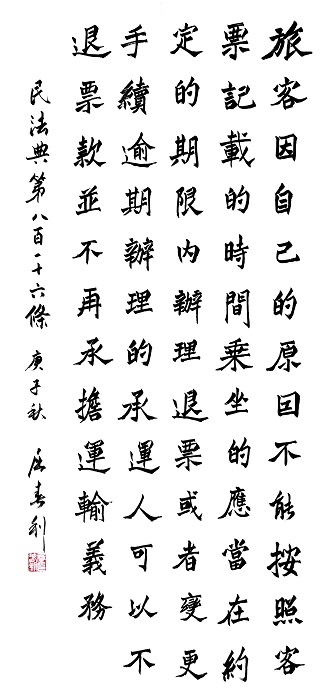 旅客因自己的原因不能按照客
票記載的時間乘坐的應當在約
定的期限內辦理退票或者變更
手續逾期辦理的承運人可以不
退票款並不再承擔運輸義務
民法典第八百一十六條 庚子秋 岳春利